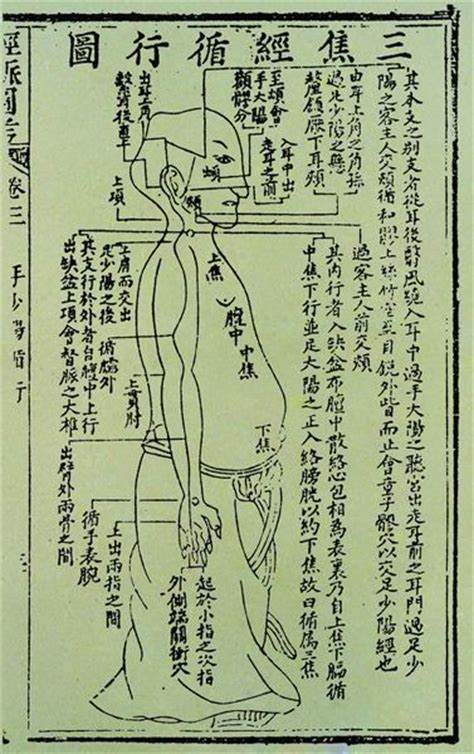 三焦經循行圖
其本支之別支者從耳後翳風繞入耳中過手太陽之聽宮出走耳前之耳門過足少
陽之客主人交頰循和髎上絲竹空至目銳外眥而止會童子髎穴以交足少陽經也
由耳上角之角孫
過足少陽之懸
釐頷厭下耳頰
過客主人前交頰
其內行者入缺盆布膻中散絡心包相為表裏乃自上焦下膈循
中焦下行並足太陽之正入絡膀胱以約下焦故曰循屬三焦
至頄會
手太陽
顴髎分
入耳中出
走耳之前
出耳上角
繫耳後直
上項
䪼
頰
上焦
膻中
中焦
下焦
上肩而交出
足少陽之後
循臑外
其支行於外者自膻中上行
出缺盆上項會督脈之大椎
上貫肘
出臂外兩骨之間
循手表腕
上出兩指之間
起於小指之次指
外側端關衝穴
經脈圖考
卷三
手少陽